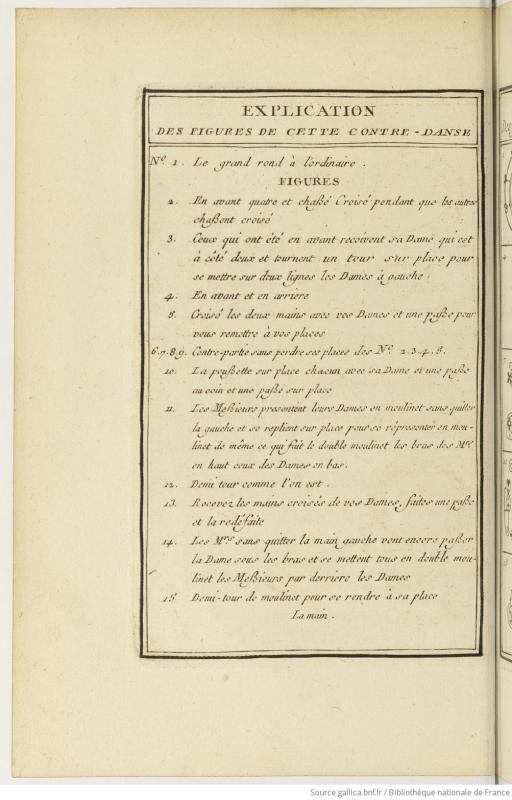 EXPLICATION
DES FIGURES DE CETTE CONTRE-DANSE
Nº. 1. Le grand rond à l'ordinaire.
FIGURES
2. En avant quatre et chaßé Croisé pendant que les autres
chaßent croisé
3. Ceux qui ont été en avant recoivent sa Dame qui est
à côté deux et tournent un tour sur place pour
se mettre sur deux lignes les Dames à gauche.
4. En avant et en arriere
5. Croisé les deux mains avec vos Dames et une paße pour
vous remettre à vos places
6.7.8.9. Contre-partie sans perdre ses places des Nº. 2.3.4.5.
10. La poußette sur place chacun avec sa Dame et une paße
au coin et une paße sur place
11. Les Meßieurs presentent leurs Dames en moulinet sans quitter
la gauche et se replient sur place pour se répresenter en mou-
linet de même ce qui fait le double moulinet les bras des Mrs.
en haut ceux des Dames en bas.
12. Demi tour comme l'on est.
13. Recevez les mains croisés de vos Dames, faites une paße
et la redéfaite
14. Les Mrs. sans quitter la main gauche vont encore paßer
la Dame sous les bras et se mettent tous en double mou-
linet les Meßieurs par derriere les Dames
15 Demi-tour de moulinet pour se rendre à sa place
La main.
Source gallica.bnf.fr / Bibliothèque nationale de France